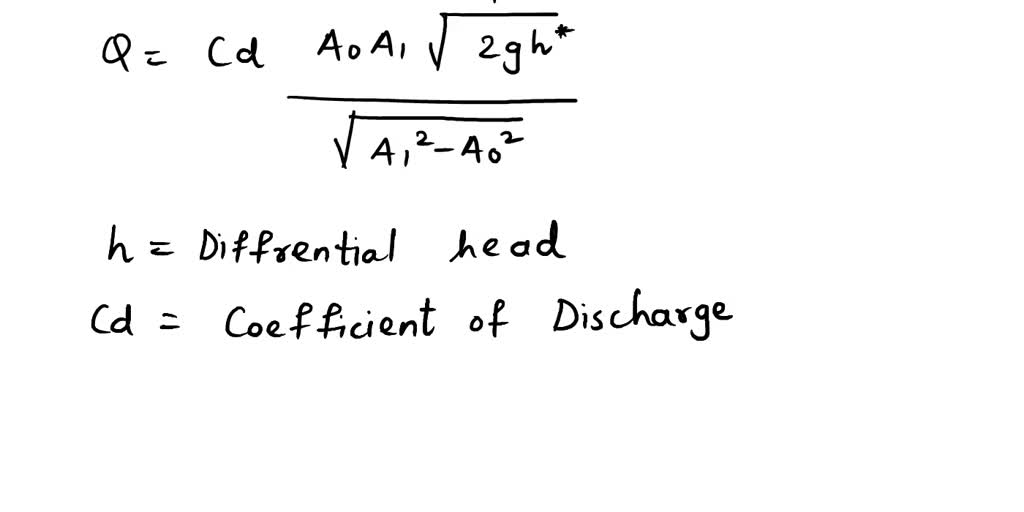 Q = Cd A₀ A₁ √2gh*
√A₁² - A₀²
h = Diffrential head
Cd = Coefficient of Discharge